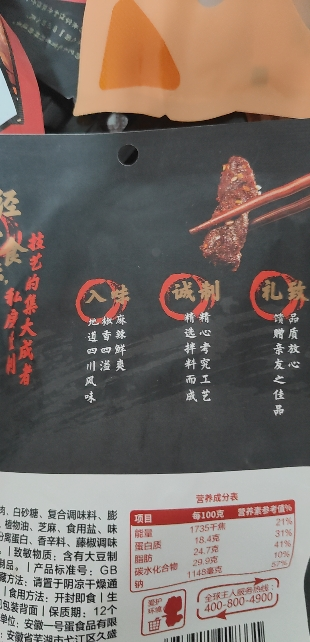 技艺的集大成者
私房美门
入味
麻辣鲜爽
椒香四溢
地道四川风味
诚制
精心考究工艺
精选拌料而成
礼致
品质放心
馈赠亲友之佳品
营养成分表
项目 每100克 营养素参考值%
能量 1735千焦 21%
蛋白质 18.4克 31%
脂肪 24.7克 41%
碳水化合物 29.9克 10%
钠 1148毫克 57%
肉、白砂糖、复合调味料、膨
、植物油、芝麻、食用盐、味
分离蛋白、香辛料、藤椒调味
。| 致敏物质：含有大豆制
制品。| 产品标准号：GB
藏方法：请置于阴凉干燥通
| 食用方法：开封即食 | 生
包装背面 | 保质期：12个
单位：安徽一号蛋食品有限
安徽省芜湖市弋江区久盛
爱护环境
全球主人服务热线：
400-800-4900